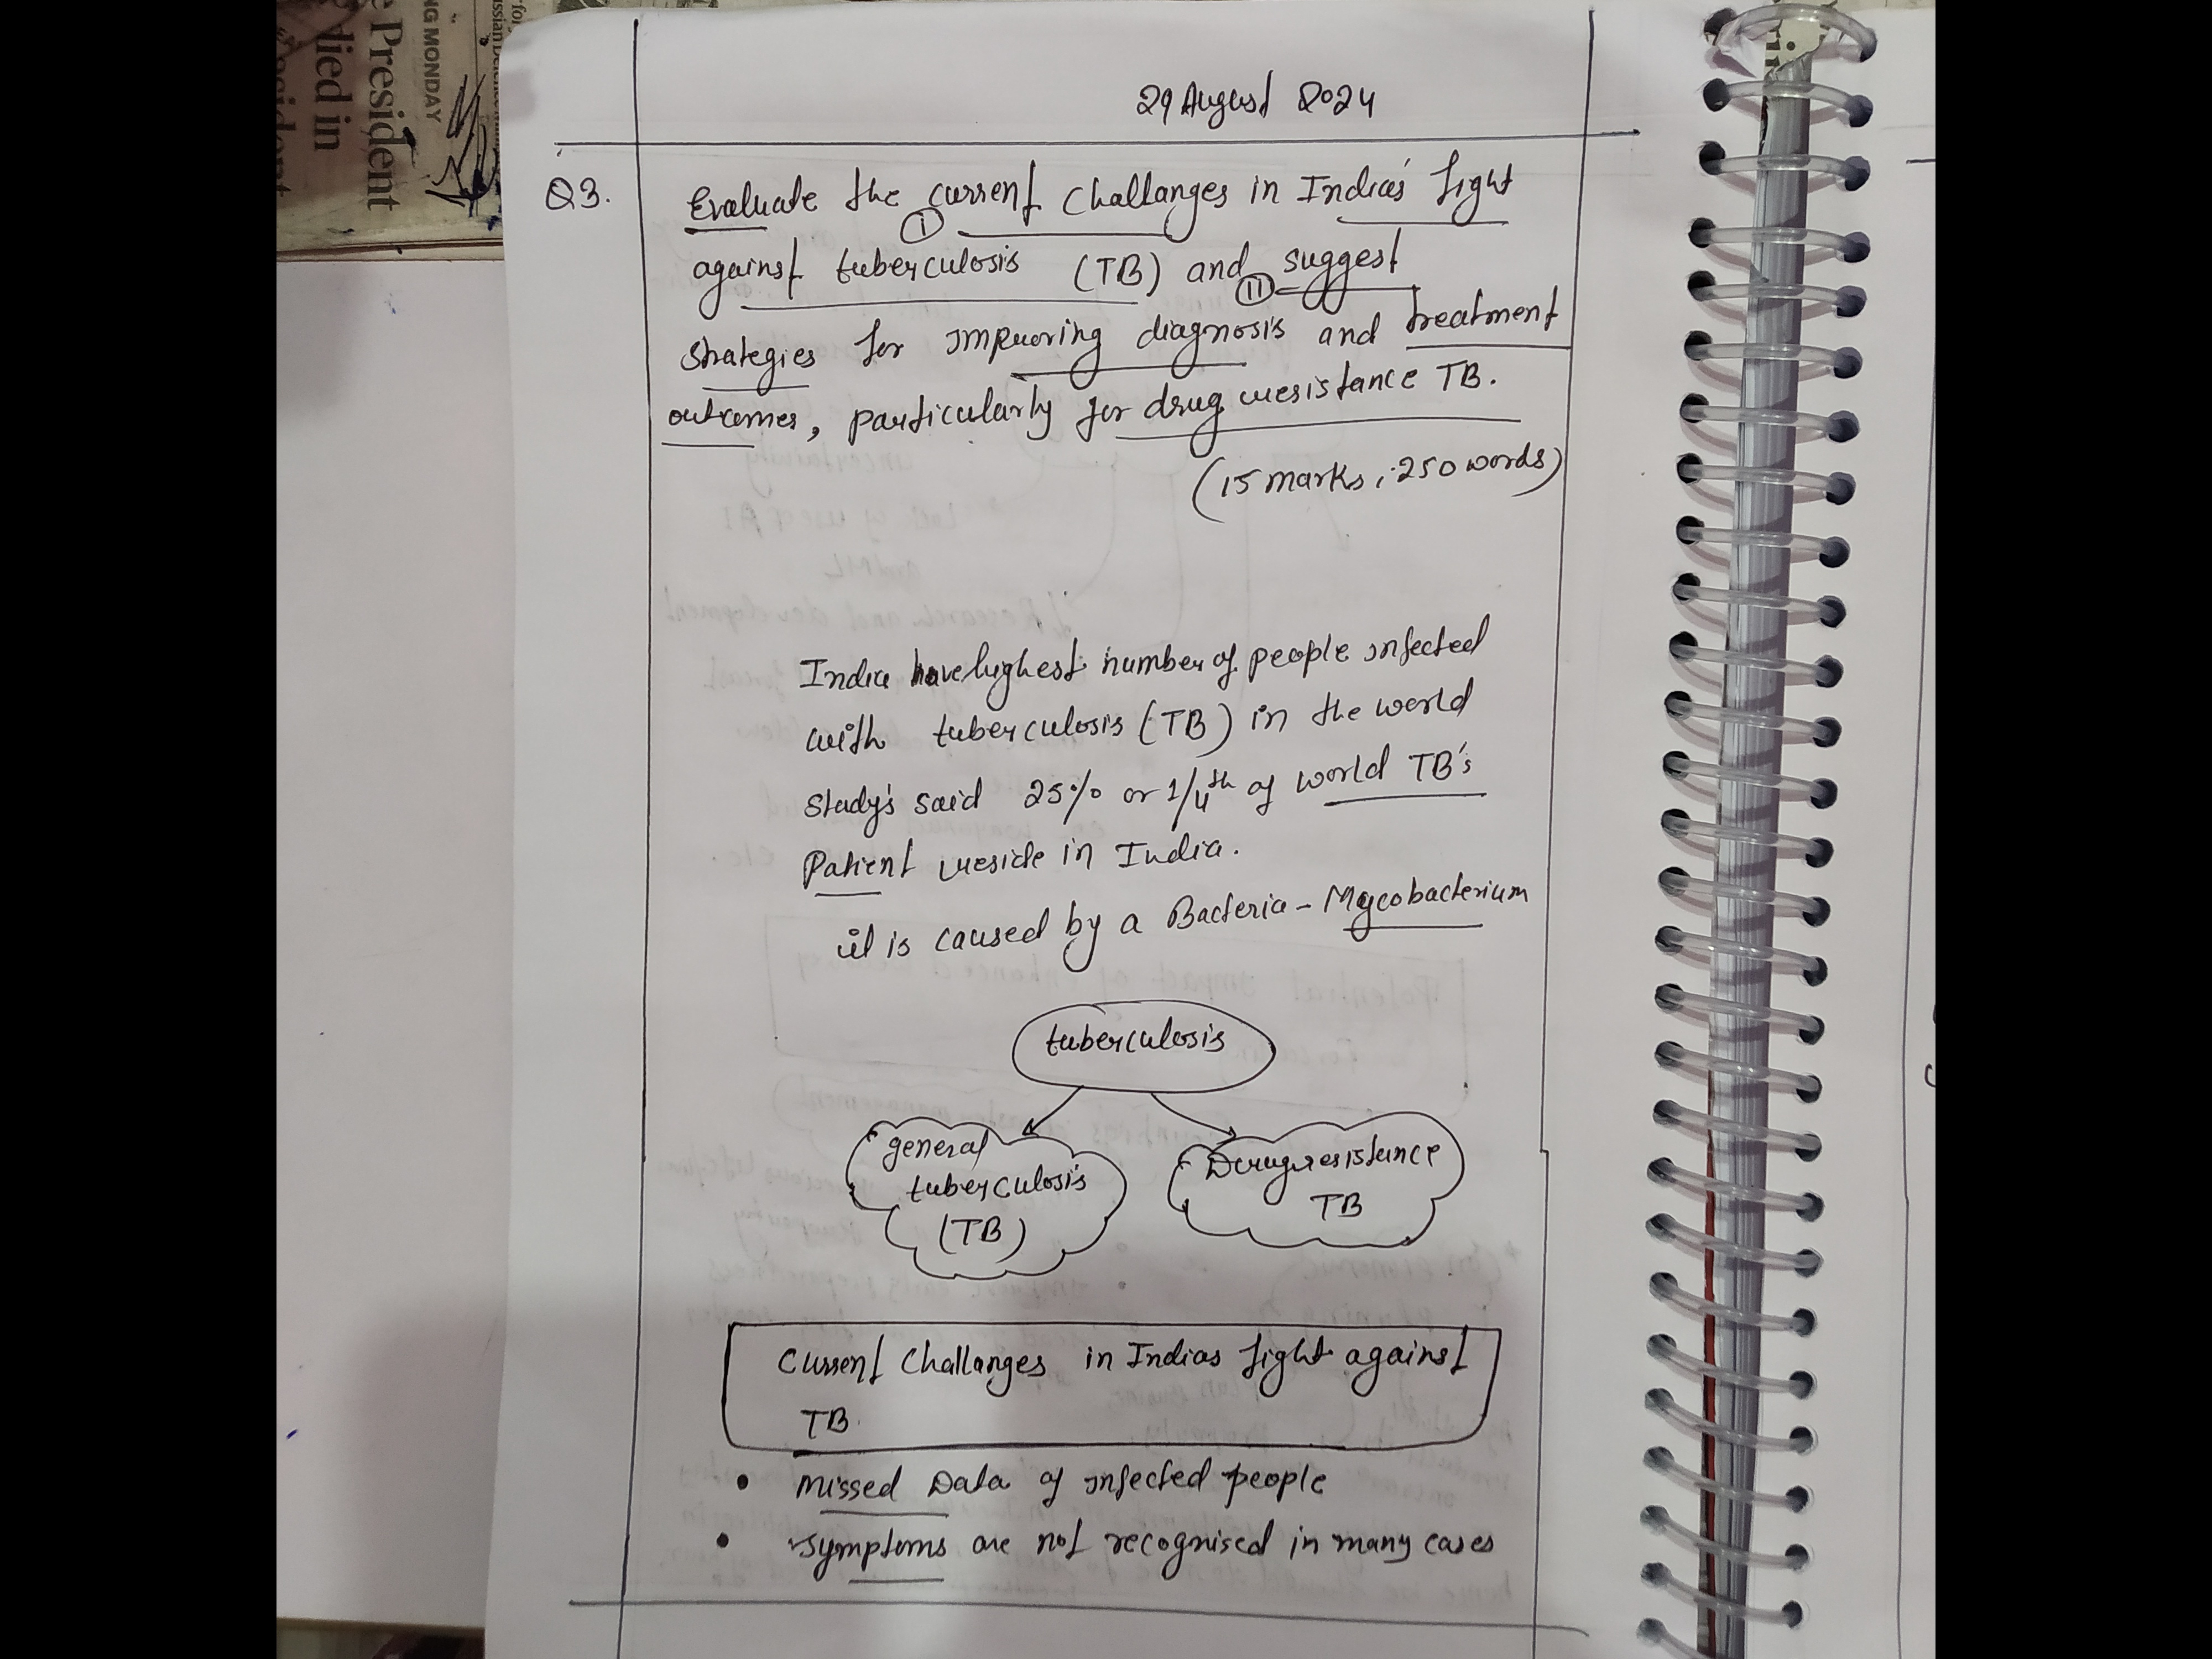 President
died in
NG MONDAY
29 August 2024
Q3. Evaluate the current challanges in India's fight
I
against tuberculosis (TB) and suggest
II
strategies for improving diagnosis and treatment
outcomes, particularly for drug resistance TB.
(15 marks, 250 words)
India have highest number of people infected
with tuberculosis (TB) in the world
Study's said 25% or 1/4th of world TB's
Patient reside in India.
it is caused by a Bacteria - Mycobacterium
tuberculosis
general
tuberculosis
(TB)
Drug resistance
TB
Current Challanges in Indias fight against
TB.
• Missed Data of infected people
• Symptoms are not recognised in many cases